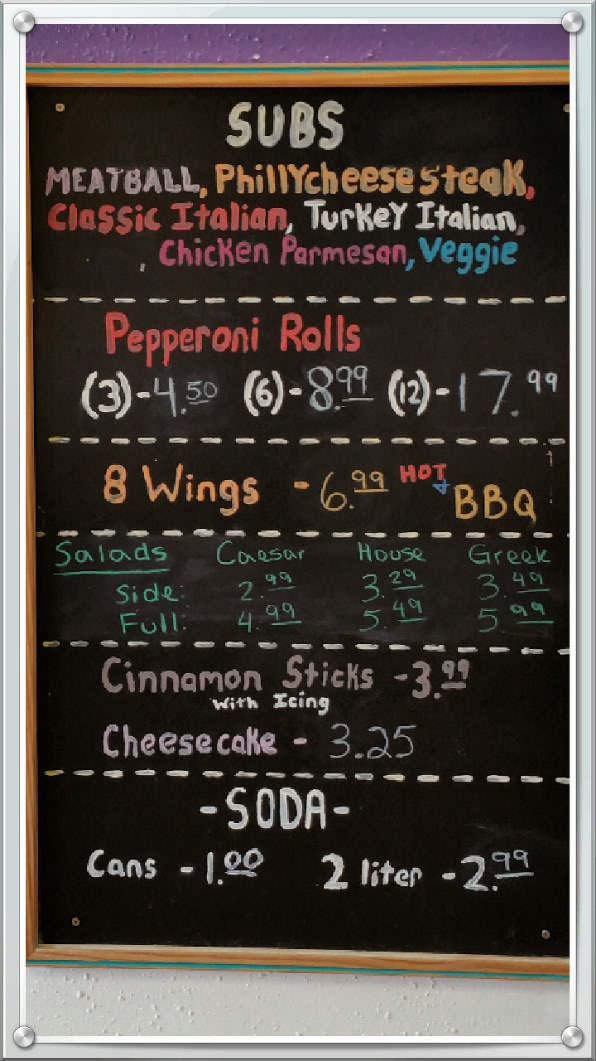 SUBS
MEATBALL, PhillYcheesesteak,
Classic Italian, TurKeY Italian,
, Chicken Parmesan, Veggie
Pepperoni Rolls
(3)-4.50 (6)-8.99 (12)-17.99
8 Wings - 6.99 HOT + BBQ
Salads Caesar House Greek
Side: 2.99 3.29 3.49
Full: 4.99 5.49 5.99
Cinnamon Sticks -3.99
with Icing
Cheesecake - 3.25
-SODA-
Cans -1.00 2 liter -2.99